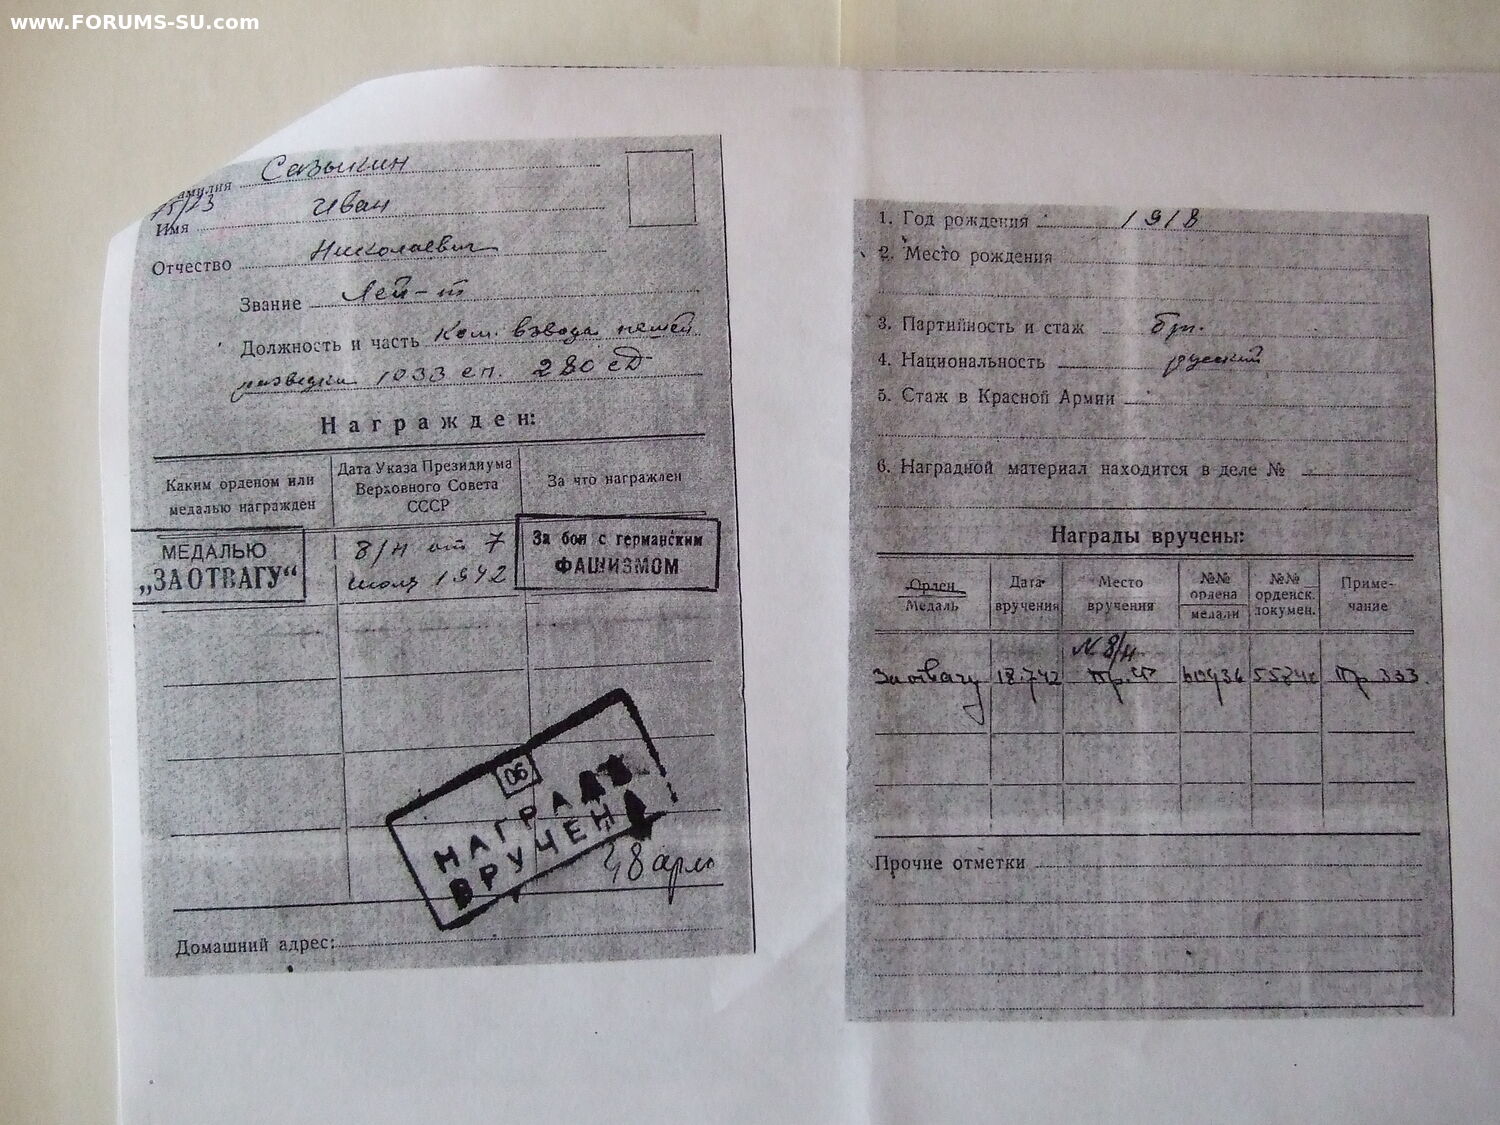 www.FORUMS-SU.com
амилия Сазыкин
75/23
Имя Иван
Отчество Николаевич
Звание Лей-т
Должность и часть Ком. взвода пешей
разведки 1033 сп. 280 сД
Награжден:
Каким орденом или медалью награжден
Дата Указа Президиума Верховного Совета СССР
За что награжден
МЕДАЛЬЮ
„ЗА ОТВАГУ“
8/н от 7
июля 1942
За бои с германским
ФАШИЗМОМ
06
НАГРАДА
ВРУЧЕНА
48 арм
Домашний адрес:
1. Год рождения 1918
2. Место рождения
3. Партийность и стаж бп.
4. Национальность русский
5. Стаж в Красной Армии
6. Наградной материал находится в деле №
Награды вручены:
Орден Медаль
Дата вручения
Место вручения
№№ ордена медали
№№ орденск. докумен.
Примечание
N 8/н
За отвагу 18.7.42 Пр. Пр. 333
Прочие отметки